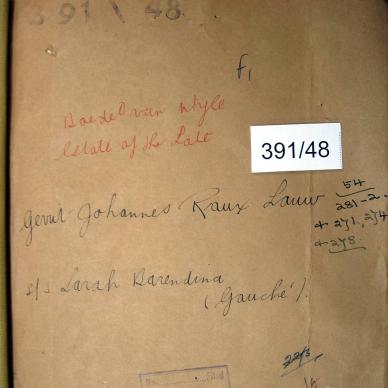 391 \ 48
f1
Boedel van wyle
Estate of the Late
391/48
Gerrit Johannes Raux Lauw
54
281-2
+ 271, 274
+ 278
s/s Sarah Barendina
(Gauché).